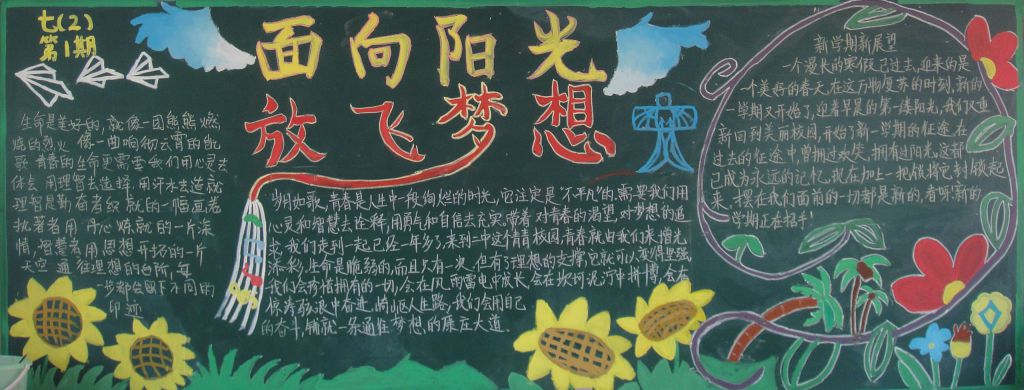 七(2)
第1期
面向阳光
放飞梦想
生命是美好的,就像一团熊熊燃
烧的烈火 像一曲响彻云霄的凯
歌 青春的生命更需要我们用心灵去
体会 用理智去选择 用汗水去造就
理智是勤奋者织就的一幅画卷
执著者用丹心炼就的一片深
情,智慧者用思想开拓的一片
天空 通往理想的台阶,每
一步都会留下不同的
印迹
岁月如歌,青春是人生中一段绚烂的时光,它注定是不平凡的,需要我们用
心灵和智慧去诠释,用勇气和自信去充实,带着对青春的渴望,对梦想的追
求,我们走到一起已经一年多了,来到一中这个校园,青春就由我们来增光
添彩,生命是脆弱的,而且只有一次,但有了理想的支撑,它就可以变得坚强,
我们会珍惜拥有的一切,会在风雨雷电中成长,会在坎坷泥泞中拼搏,会在
惊涛骇浪中奋进,崎岖人生路,我们会用自己
的奋斗,铺就一条通往梦想的康庄大道.
新学期新展望
一个漫长的寒假已过去,迎来的是
一个美好的春天,在这万物复苏的时刻,新的
一学期又开始了,迎着早晨的第一缕阳光,我们又重
新回到美丽校园,开始了新一学期的征途,在
过去的征途中,曾拥过欢笑,拥有过阳光,这都
已成为永远的记忆,现在加上一把锁将它封锁起
来,摆在我们面前的一切都是新的,看呀!新的一
学期正在招手!